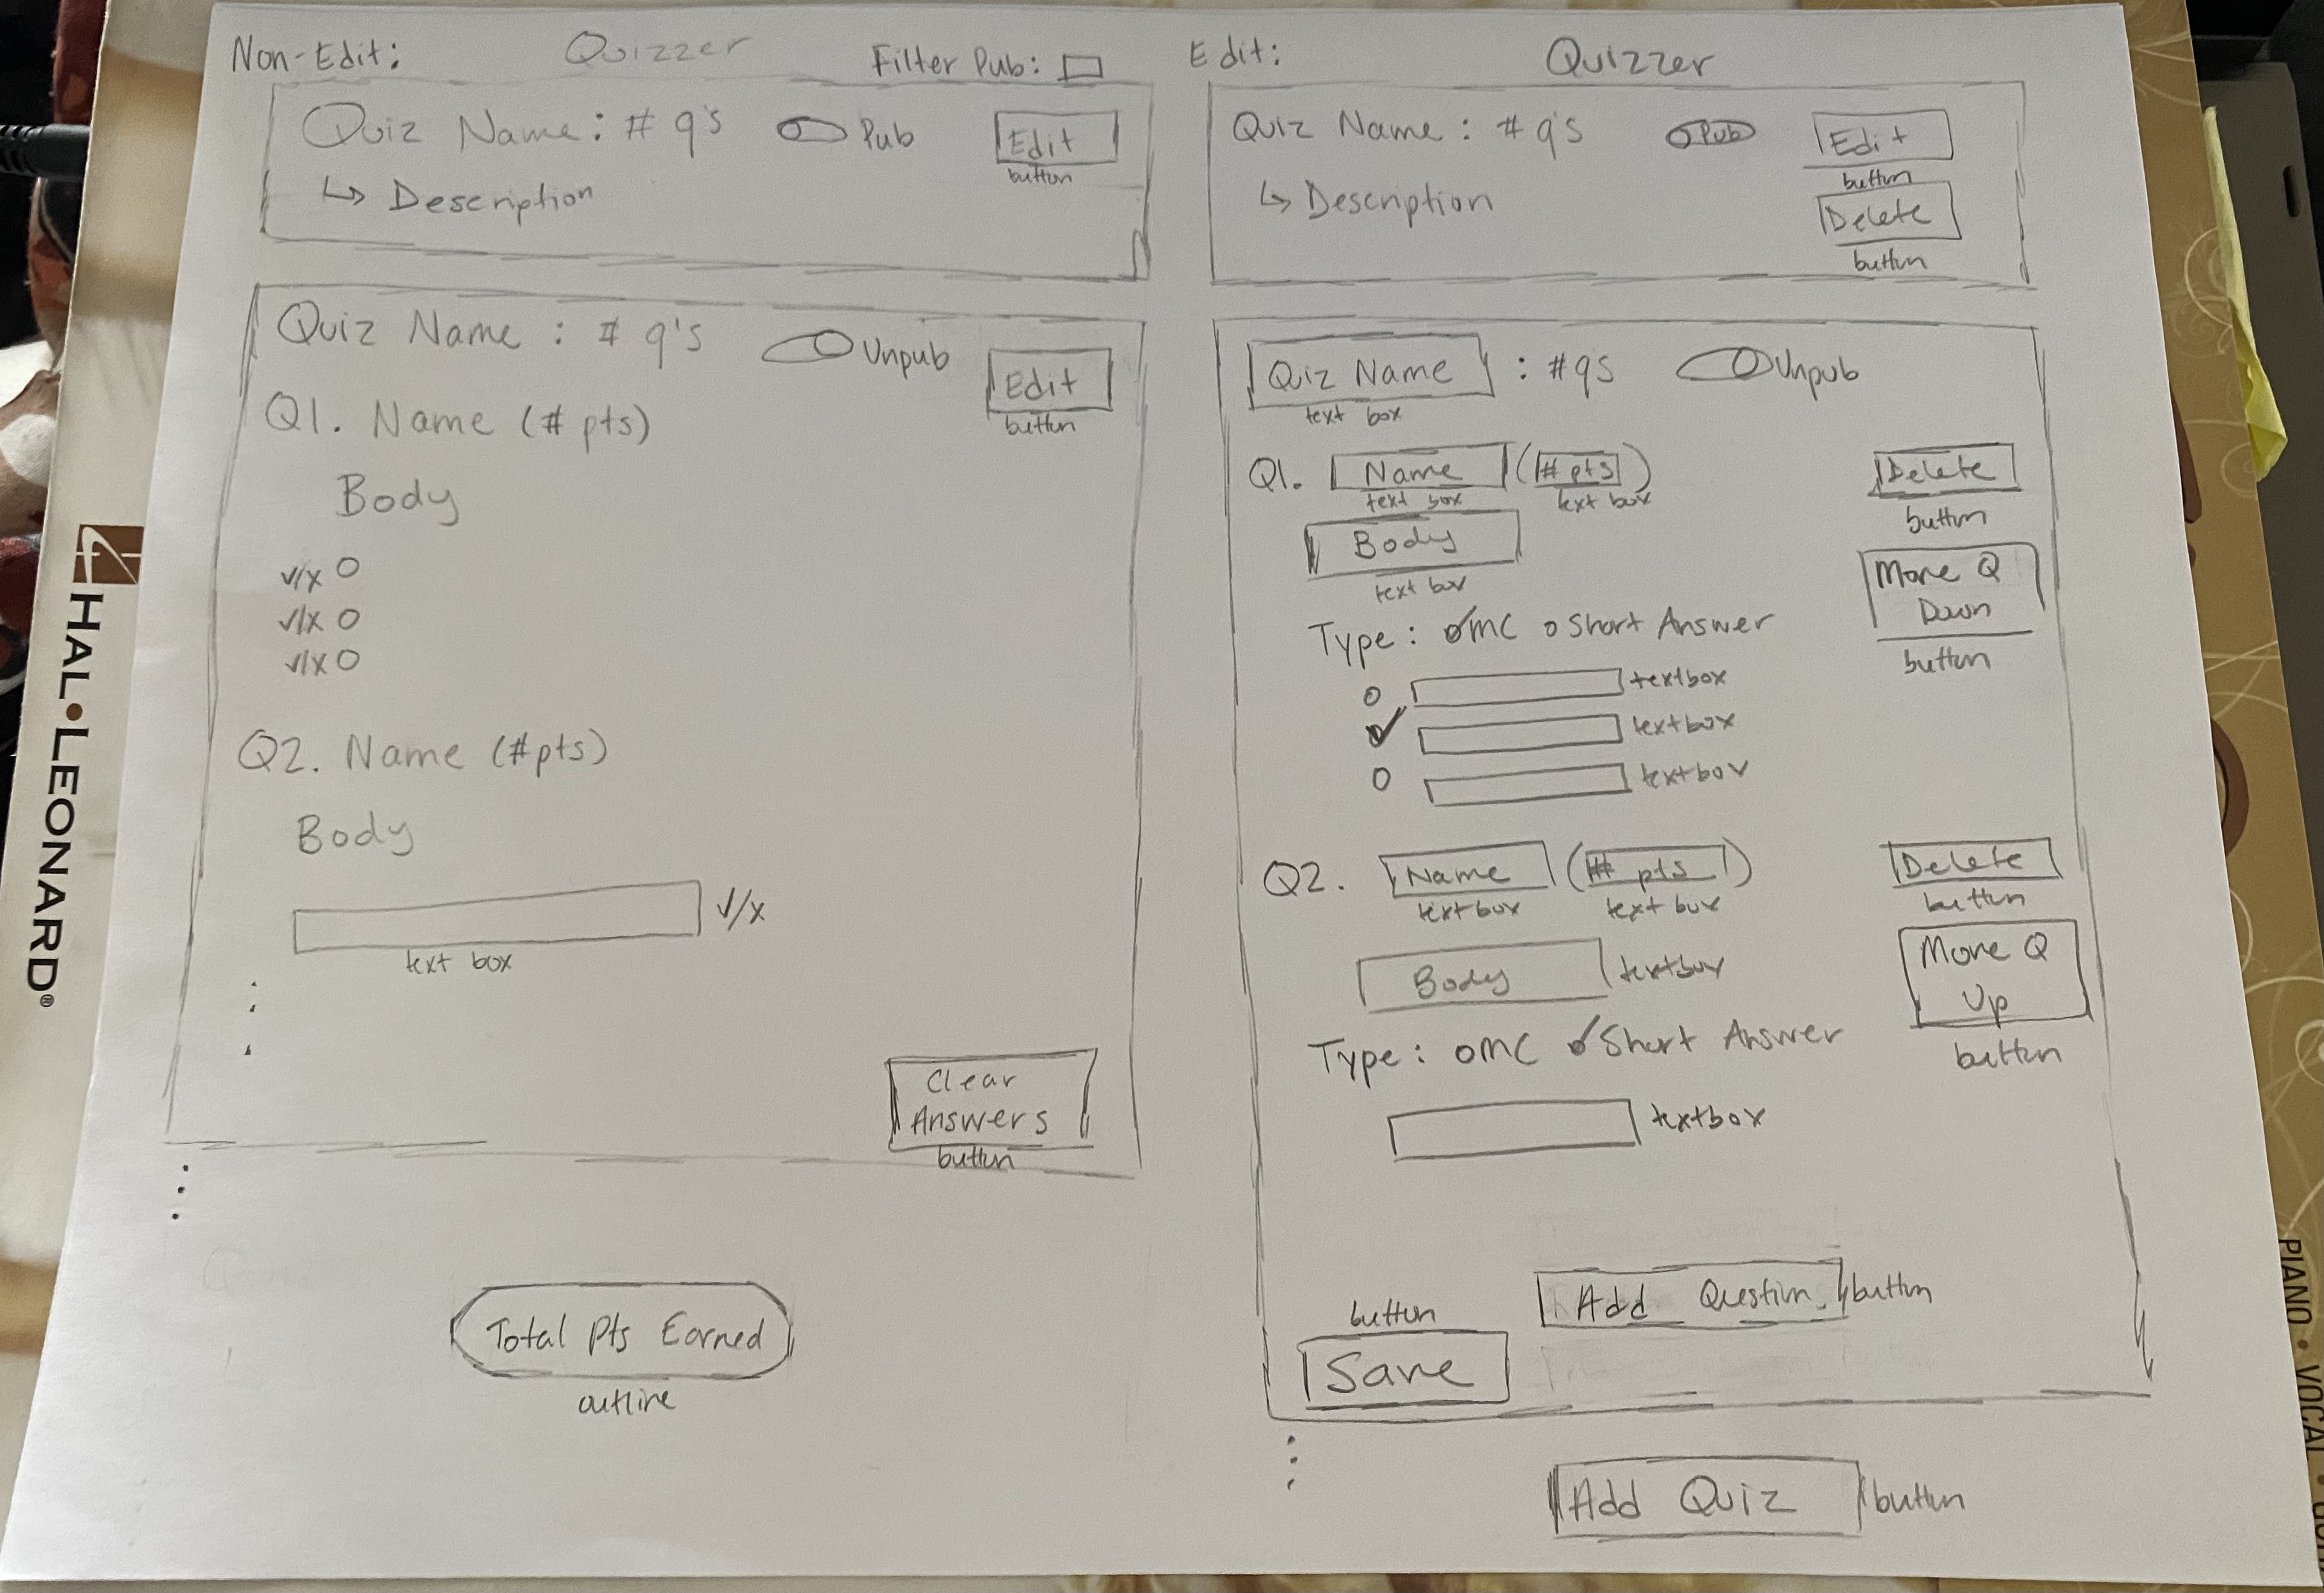 Non-Edit:
Quizzer
Filter Pub:
Quiz Name: # q's
Pub
Edit
button
↳ Description
Quiz Name : # q's
Unpub
Edit
button
Q1. Name (# pts)
Body
✓/x O
✓/x O
✓/x O
Q2. Name (#pts)
Body
✓/x
text box
Clear
Answers
button
Total Pts Earned
outline
Edit:
Quizzer
Quiz Name : # q's
Pub
Edit
button
↳ Description
Delete
button
Quiz Name : #qs
Unpub
text box
Q1. Name (# pts)
text box
text box
Delete
button
Body
text box
Move Q
Down
button
Type : MC Short Answer
textbox
textbox
textbox
Q2. Name (# pts)
textbox
text box
Delete
button
Body
textbox
Move Q
Up
button
Type : MC Short Answer
textbox
Add Question
button
button
Save
Add Quiz
button
HAL•LEONARD®
PIANO • VOCAL •